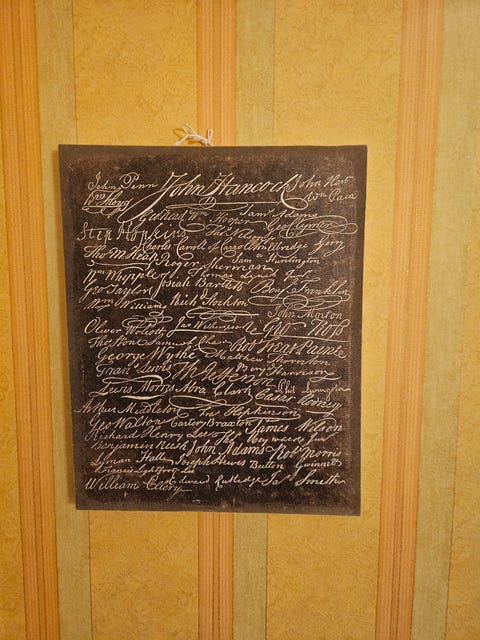 John Penn John Hancock John Hart
Wm Paca
Geo Read Wm Hooper Saml Adams
Step Hopkins Geo Clymer
Charles Carroll of Elbridge Gerry
Tho M:Kean Roger Sherman Sam Huntington
Wm Whipple Thomas Lynch
Geo Taylor Josiah Bartlett Benj Franklin
Wm Williams Rich Stockton
John Morton
Oliver Wolcott Jas Witherspoon Geo Ross
Samuel Chase Rob Treat Paine
George Wythe Matthew Thornton
Lewis Th Jefferson Benj Harrison
Lewis Morris Abra Clark Caesar Rodney
Arthur Middleton Fra Hopkinson
Geo Walton Carter Braxton James Wilson
Richard Henry Lee Tho Heyward Jun
Benjamin Rush John Adams Rob Morris
Lyman Hall Joseph Hewes Button Gwinnett
Francis Lightfoot Lee
William Ellery Edward Rutledge Jas Smith